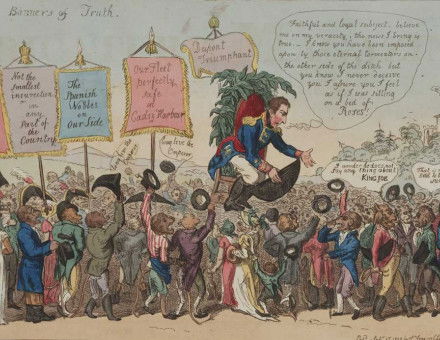 Banners of Truth.
Faithful and loyal subject. believe
me on my veracity, the news I bring is
true._ I know you have been imposed
upon by those eternal tormentors on
the other side of the ditch but
you know I never deceive
you I assure you I feel
as if I was sitting
on a bed of
Roses!
Not the
smallest
insurrection
in
any
Part of
the
Country
The
Spanish
Nobles
on
Our Side
Our Fleet
perfectly
safe
in
Cadiz Harbour
Dupont
Triumphant
Long live the
Emperor
I wonder he does not
say any thing about
KING JOE
That is